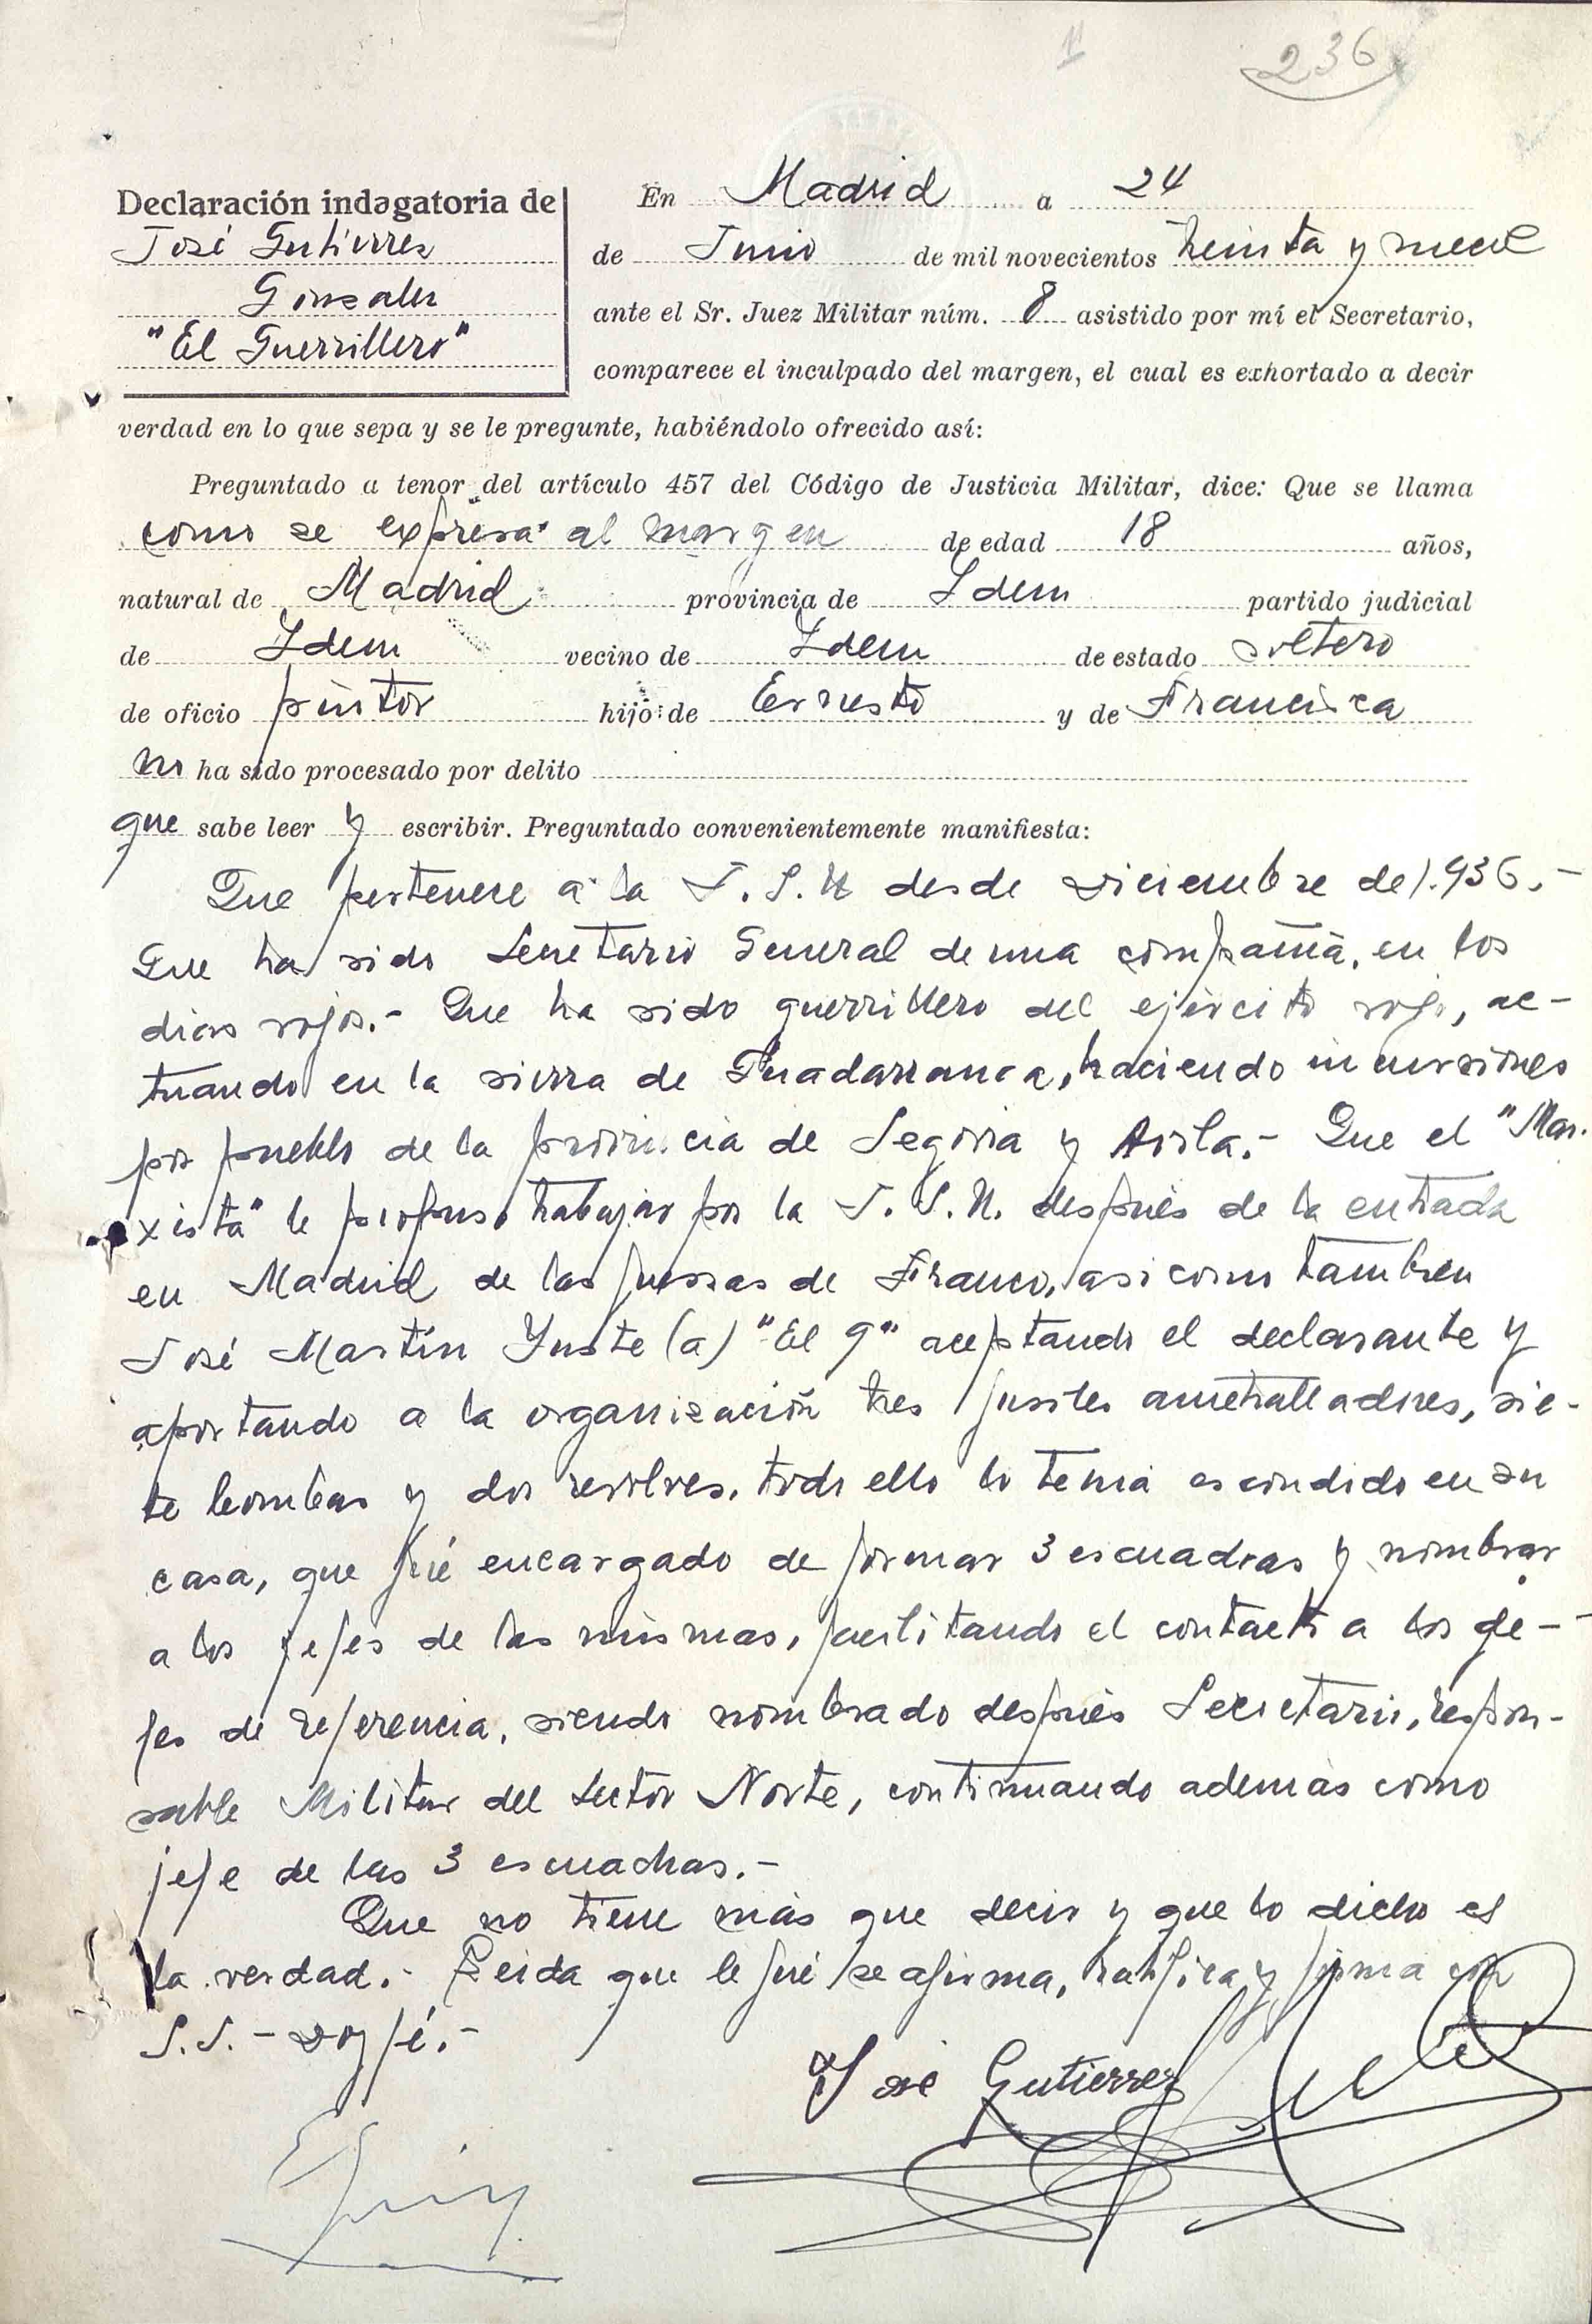 236
Declaración indagatoria de
José Gutiérrez
Gonzalez
"El Guerrillero"
En Madrid a 24
de Junio de mil novecientos treinta y nueve
ante el Sr. Juez Militar núm. 8 asistido por mí el Secretario,
comparece el inculpado del margen, el cual es exhortado a decir
verdad en lo que sepa y se le pregunte, habiéndolo ofrecido así:
Preguntado a tenor del artículo 457 del Código de Justicia Militar, dice: Que se llama
como se expresa al margen de edad 18 años,
natural de Madrid provincia de Idem partido judicial
de Idem vecino de Idem de estado soltero
de oficio pintor hijo de Ernesto y de Francisca
no ha sido procesado por delito
que sabe leer y escribir. Preguntado convenientemente manifiesta:
Que pertenece a la J.S.U desde Diciembre de 1.936.-
Que ha sido Secretario General de una compañía, en los
dias rojos.- Que ha sido guerrillero del ejército rojo, ac-
tuando en la sierra de Guadarrama, haciendo incursiones
por pueblo de la provincia de Segovia y Avila.- Que el "Mar-
xista" le propuso trabajar por la J.S.U. después de la entrada
en Madrid de las fuerzas de Franco, asi como tambien
José Martín Yuste (a) "El 9" aceptando el declarante y
aportando a la organización tres fusiles ametralladores, sie-
te bombas y dos revolves, todo ello lo tenia escondido en su
casa, que fué encargado de formar 3 escuadras y nombrar
a los jefes de las mismas, facilitando el contacto a los je-
fes de referencia, siendo nombrado después Secretario, respon-
sable Militar del Sector Norte, continuando además como
jefe de las 3 escuadras.-
Que no tiene más que decir y que lo dicho es
la verdad.- Leida que le fué se afirma, ratifica y firma con
S.S.- Doy fé.-
José Gutierrez